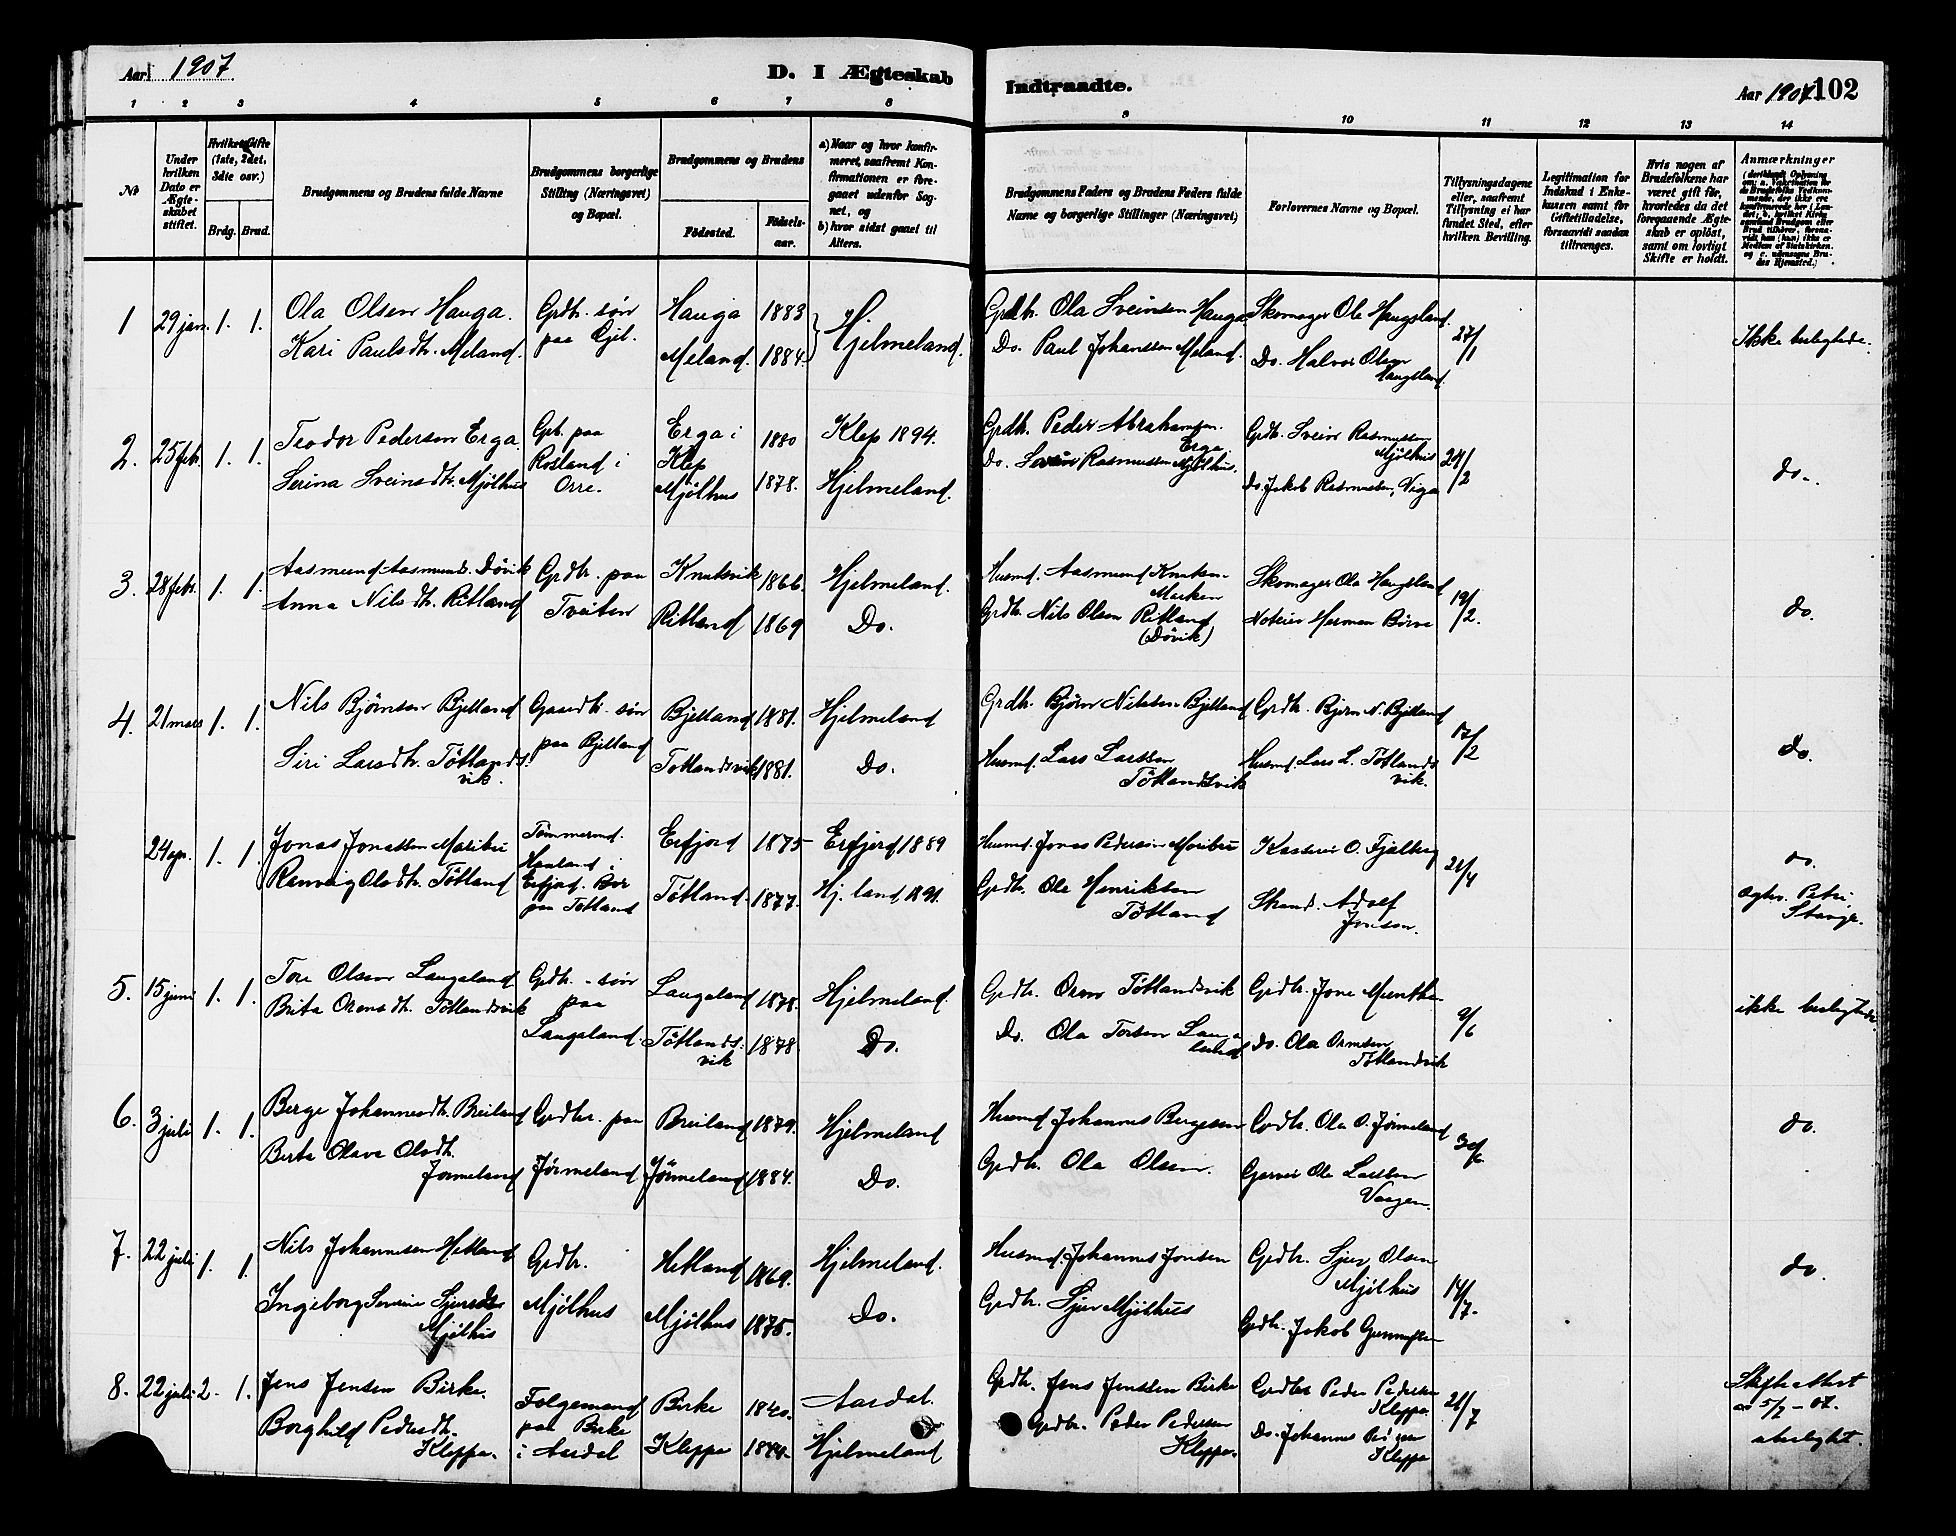 Aar 1907.
D. I Ægteskab
Indtraadte.
Aar 1907. 102
1 2 3 4 5 6 7 8 9 10 11 12 13 14
No
Under hvilken Dato er Ægteskabet stiftet.
Hvilket Gifte (1ste, 2det, 3die osv.)
Brdg. Brud.
Brudgommens og Brudens fulde Navne
Brudgommens borgerlige Stilling (Næringsvei) og Bopæl.
Brudgommens og Brudens
Fødested.
Fødselsaar.
a) Naar og hvor konfirmeret, saafremt Konfirmationen er foregaaet udenfor Sognet, og
b) hvor sidst gaaet til Alters.
Brudgommens Faders og Brudens Faders fulde Navne og borgerlige Stillinger (Næringsvei)
Forlovernes Navne og Bopæl.
Tillysningsdagene eller, saafremt Tillysning ei har fundet Sted, efter hvilken Bevilling.
Legitimation for Indskud i Enkekassen samt for Giftetilladelse, forsaavidt saadan tiltrænges.
Hvis nogen af Brudefolkene har været gift før, hvorledes da det foregaaende Ægteskab er opløst, samt om lovligt Skifte er holdt.
Anmærkninger
1 29 jan. 1. 1.
Ola Olsen Hauga.
Kari Paulsdtr. Meland.
Grdbr. søn
paa Gjil.
Hauga 1883
Meland. 1884.
Hjelmeland.
Grdbr. Ola Sveinsen Hauga
Do. Paul Johanssen Meland.
Skomager Ole Haugsland.
Do. Halvor Olsen
Haugsland.
27/1
Ikke beslegtede.
2. 25 febr. 1. 1.
Teodor Pedersen Erga
Serina Sveinsdtr. Mjølhus
Gbr. paa
Rosland i
Orre.
Erga i
Klep 1880
Mjølhus 1878.
Klep 1894.
Hjelmeland.
Grdbr. Peder Abrahamsen
Erga
Do. Svein Rasmussen Mjølhus.
Grdbr. Svein Rasmussen
Mjølhus
Do. Jakob Rasmussen, Viga
24/2
do.
3. 28 febr. 1. 1.
Aasmund Aasmunds. Døvik
Anna Nilsdtr. Ritland
Grdbr. paa
Tveiten
Knutsvik 1866.
Ritland 1869
Hjelmeland.
Do.
Husmd. Aasmund Knutsen
Grdbr. Nils Olsen Ritland
(Døvik)
Skomager Ola Haugsland
Herman Børve
19/2.
do.
4. 21 mars 1. 1.
Nils Bjørnsen Bjelland
Siri Larsdtr. Tøtlands
vik.
Gaardbr. søn
paa Bjelland
Bjelland 1881.
Totlandsvik 1881.
Hjelmeland
Do.
Grdbr. Bjørn Nilssen Bjelland
Husmd. Lars Larssen
Tøtlandsvik
Grdbr. Bjørn N. Bjelland
Husmd. Lars L. Tøtlands
vik.
17/2
do.
24 apr. 1. 1.
Jonas Jonassen Maribu
Ranveig Olsdtr. Tøtland
Tømmermd.
Haaland i
Erfjord. Bor
paa Tøtland
Erfjord 1875
Tøtland. 1877.
Erfjord 1889
Hj. land 1891.
Husmd. Jonas Pedersen Maribu
Grdbr. Ole Henriksen
Tøtland
Kasserer O. Fjalberg
Strand. Adolf
Jonson.
21/4
do.
Ægtev. Petri,
Stavgr.
5. 15 juni 1. 1.
Tore Olsen Laugaland
Brita Ormsdtr. Tøtlandsvik
Grdbr. søn
paa
Laugaland.
Laugaland 1878.
Tøtlands-
vik 1878
Hjelmeland.
Do.
Grdbr. Orm Tøtlandsvik
Do. Ola Torsen Lauga
land
Grdbr. Jone Munthe
Do. Ola Ormsen
Tøtlandsvik
9/6
ikke beslegtede.
6. 3 juli 1. 1.
Berge Johannesdtr. Breiland
Berta Olava Olsdtr.
Jørmeland
Grdbr. paa
Jørmeland
Breiland 1879.
Jørmeland 1884.
Hjelmeland
Do.
Husmd Johannes Bergesen
Grdbr. Ola Olsen.
Grdbr. Ola O. Jørmeland
Garver Ole Larssen
Vaagen.
30/6
do.
7. 22 juli 1. 1.
Nils Johannesen Hetland
Ingeborg Serine Sjursdtr
Mjølhus
Grdbr.
Mjølhus
Hetland 1869.
Mjølhus 1875.
Hjelmeland.
Do.
Husmd. Johannes Jonsen
Grdbr. Sjur Mjølhus
Grdbr. Sjur Olsen
Mjølhus
Grdbr. Jakob
14/7.
do.
8. 22 juli 2. 1.
Jens Jensen Birke.
Borghild Pedersdtr.
Kleppa.
Folgemand
paa Birke
i Aardal
Birke 1840.
Kleppa 1884.
Aardal.
Hjelmeland
Grdbr. Jens Jenssen Birke
Grdbr. Peder Pedersen
Kleppa.
Grdbr Peder Pedersen
Kleppa.
Do. Johannes
Kleppa
21/7
Skifteattest
av 5/7 - 07.
ubeslegtet.